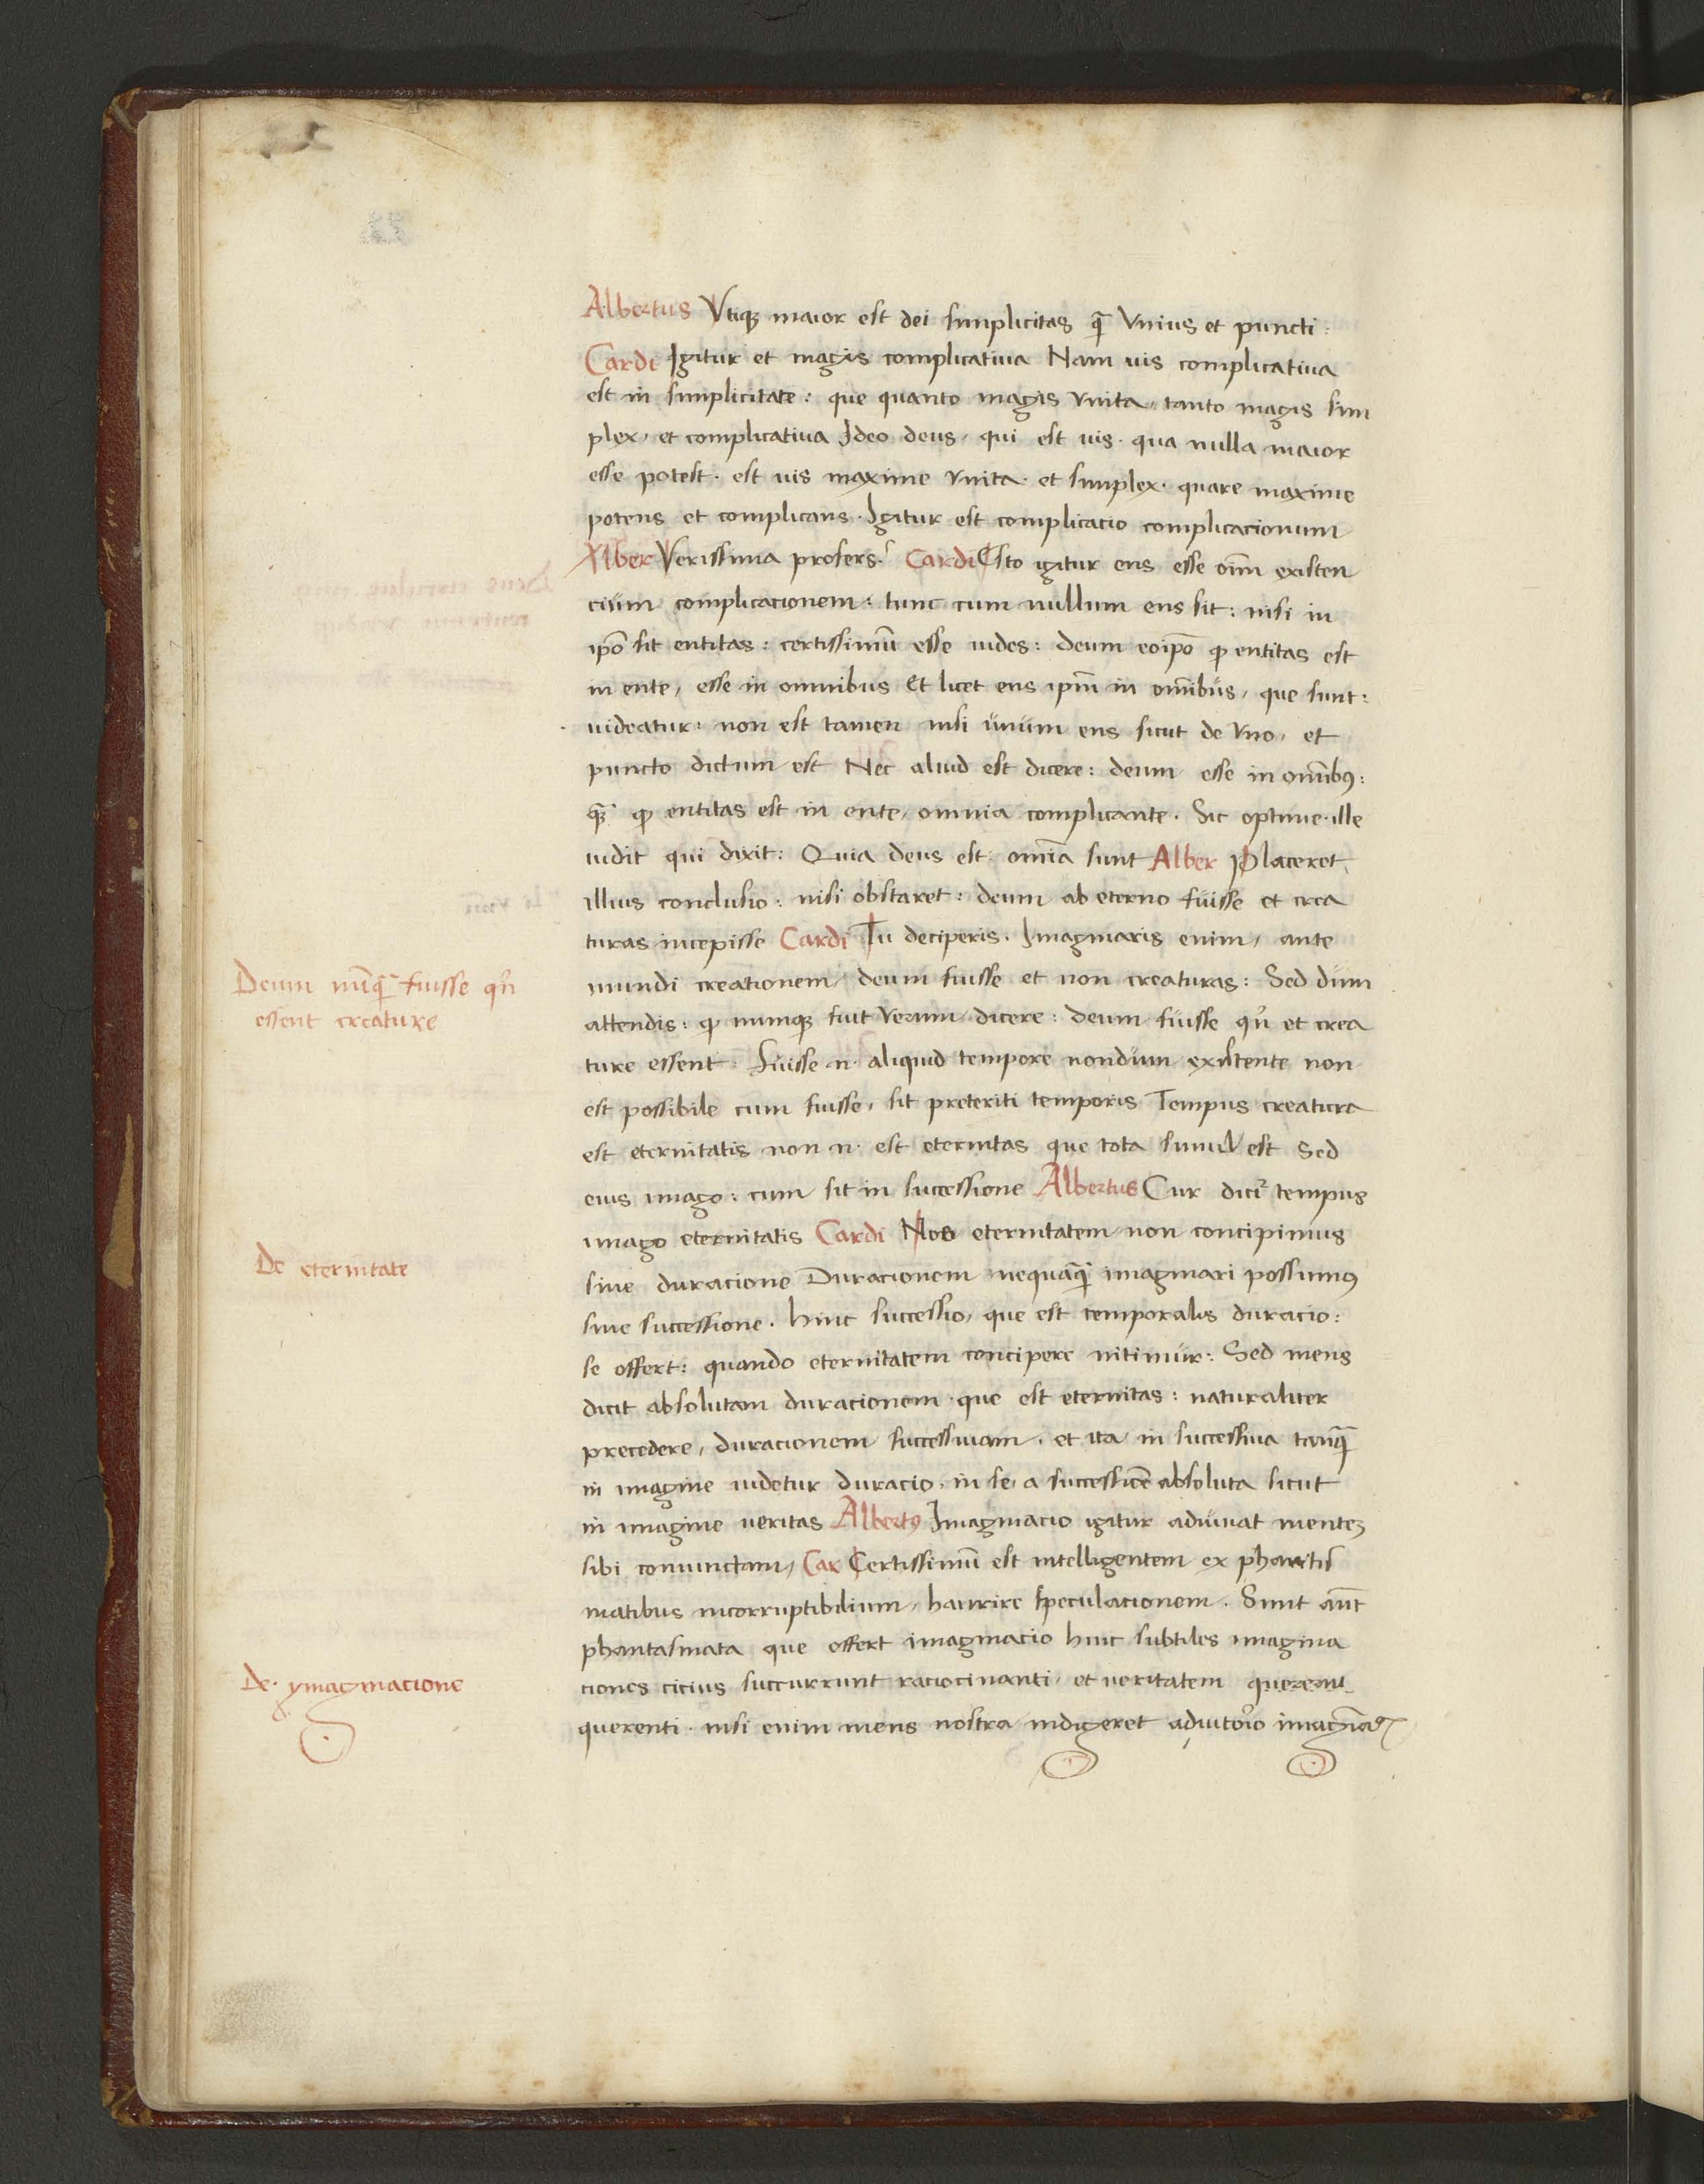 Albertus Vtiqȝ maior est dei simplicitas q̄ vnius et puncti:
Cardi Igitur et magis complicatiua Nam uis complicatiua
est in simplicitate: que quanto magis vnita, tanto magis sim
plex, et complicatiua Ideo deus, qui est uis. qua nulla maior
esse potest. est uis maxime vnita. et simplex. quare maxime
potens et complicans. Igitur est complicatio complicacionum
Alber Verissima profers. Cardi Esto igitur ens esse oīm existen
cium complicacionem: tunc cum nullum ens sit: nisi in
ip̄o sit entitas: certissimū esse uides: deum eoip̄o ꝙ entitas est
in ente, esse in omnibus Et licet ens ip̄m in om̄ibus, que sunt:
uideatur: non est tamen nisi unum ens sicut de vno, et
puncto dictum est Nec aliud est dicere: deum esse in om̄ibꝰ:
qȝ̄ ꝙ entitas est in ente, omnia complicante. Sic optime. ille
uidit qui dixit: Quia deus est. om̄ia sunt Alber Placeret
illius conclusio: nisi obstaret: deum ab eterno fuisse et crea
turas incepisse Cardi Tu deciperis. Imaginaris enim, ante
mundi creationem, deum fuisse et non creaturas: Sed dum
attendis: ꝙ numqȝ fuit verum dicere: deum fuisse qn̄ et crea
ture essent. Fuisse .n. aliquid tempore nondum existente non
est possibile cum fuisse, sit preteriti temporis Tempus creatura
est eternitatis non .n. est eternitas que tota simul est Sed
eius imago: cum sit in successione Albertus Cur dicit᷑ tempus
imago eternitatis Cardi Nos eternitatem non concipimus
sine duracione Duracionem nequaq̄ imaginari possumꝰ
sine successione. hinc successio, que est temporalis duracio:
se offert: quando eternitatem concipere nitimur: Sed mens
dicit absolutam duracionem. que est eternitas: naturaliter
precedere, duracionem successiuam. et ita in successiua tanq̄
in imagine uidetur duracio, in se, a successiōe absoluta sicut
in imagine veritas Albertꝰ Imaginacio igitur adiuuat menteȝ
sibi coniunctam, Car Certissimū est intelligentem ex phantas
matibus incorruptibilium, haurire speculacionem. Sunt aūt
phantasmata que offert imaginacio hinc subtiles imagina
ciones cicius succurrunt raciocinanti, et veritatem
querenti. nisi enim mens nostra indigeret adiutorio
Deum nūq̄ fuisse qn̄
essent creature
De eternitate
De. ymaginacione